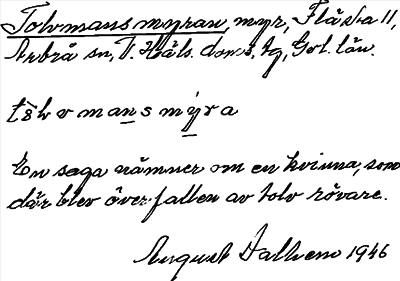 Tolvmansmyran, myr, Flästa 11,
Arbrå sn, V. Häls. doms, tg, Gvl. län.
tålvmansmýra
En saga nämner om en kvinna, som
där blev överfallen av tolv rövare.
August Dalhem 1946